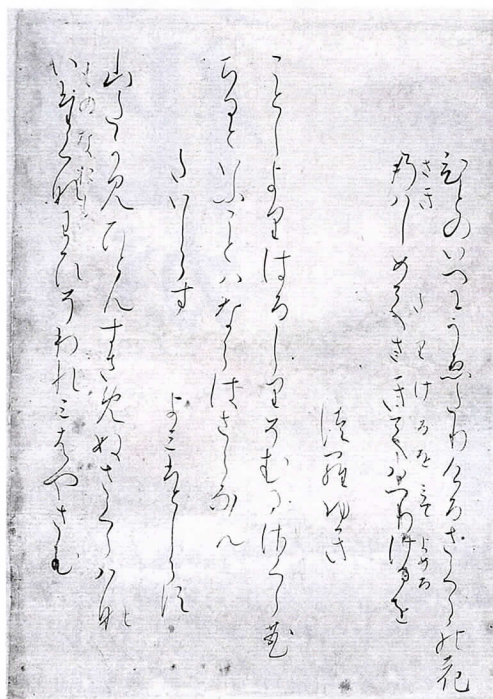 ひとのいへにうゑたりけるさくらの花
さき たりけるをみてよめる
はしめてさきて はへりけるを
徒羅ゆき
ことしよりはるしりそむるさくら花
ちるといふことはならはさらなん
たいしらす
よみひとしらす
山たかみひともすさめぬさくらはな
いたくなわひそわれみはやさむ